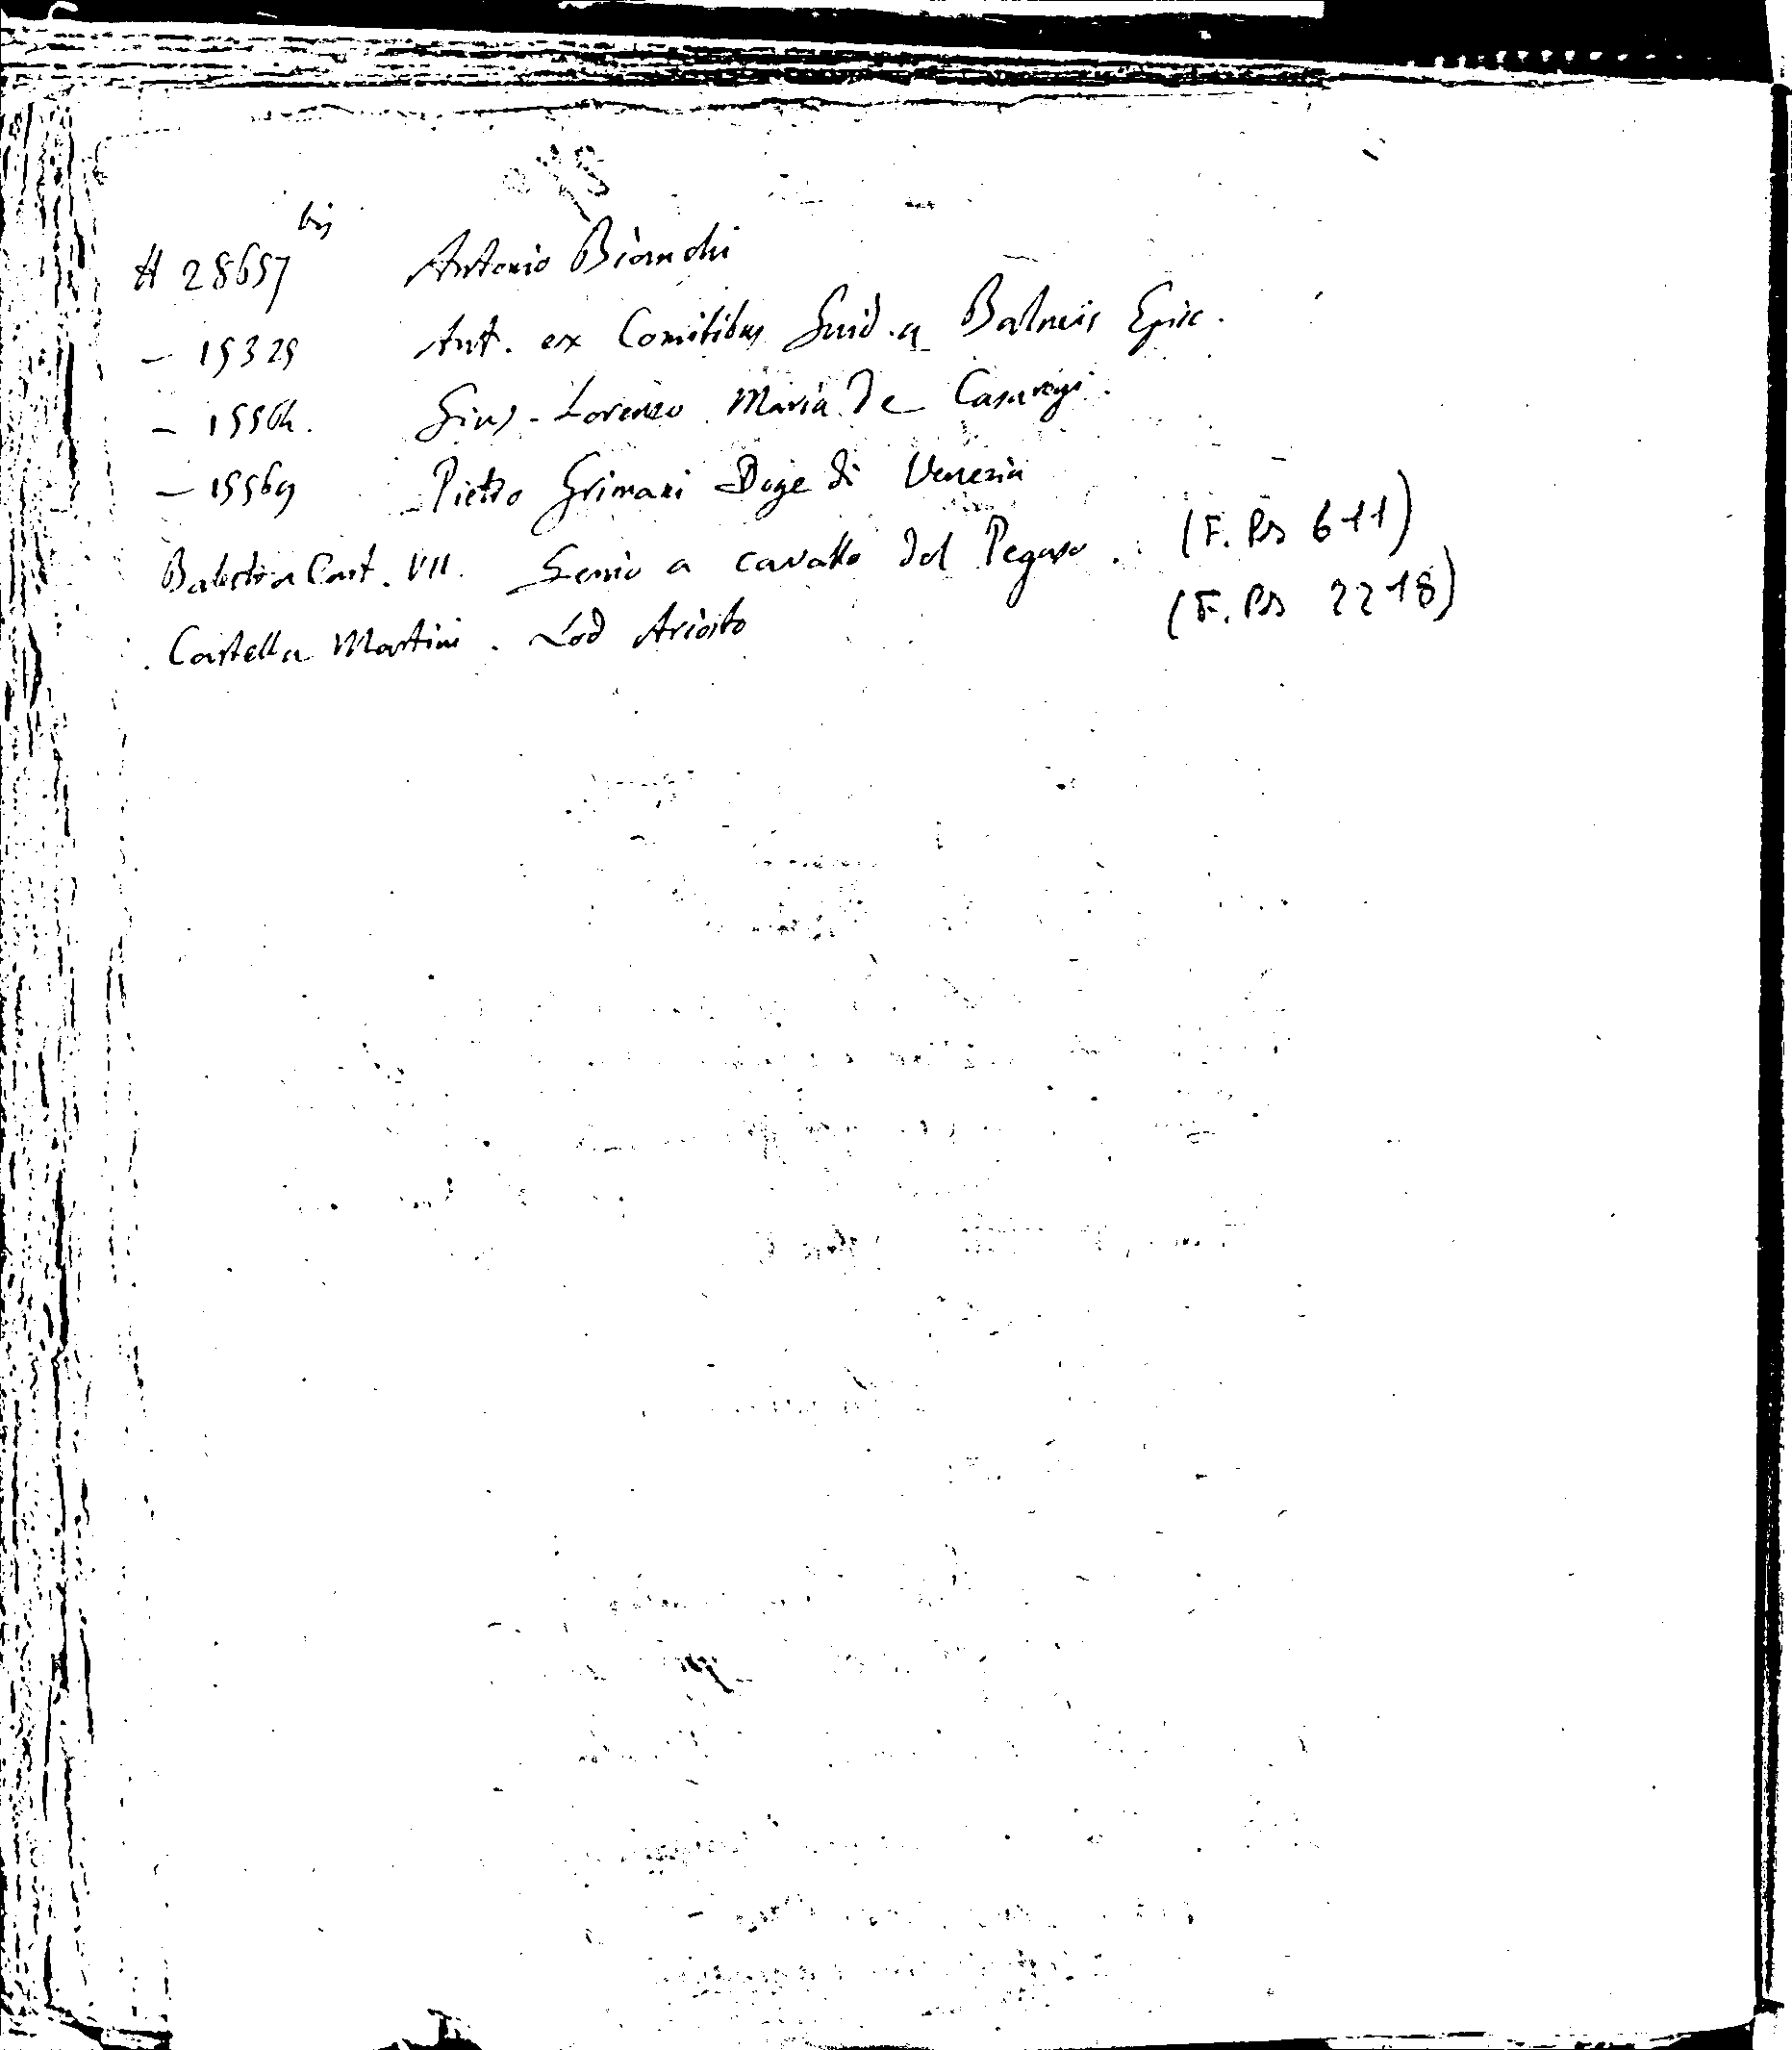 H 28657 bis Antonio Bianchi
- 15329 Ant. ex Comitibus Guid. a Balneis Epic.
- 1556h. Gius. Lorenzo Maria De Casaregi.
- 15569 Pietro Grimani Doge di Venezia
Balestra Cart. VII. Genio a cavallo del Pegaso. (F. Ps 611)
Cartella Martini. Lod Ariosto (F. Ps 2218)